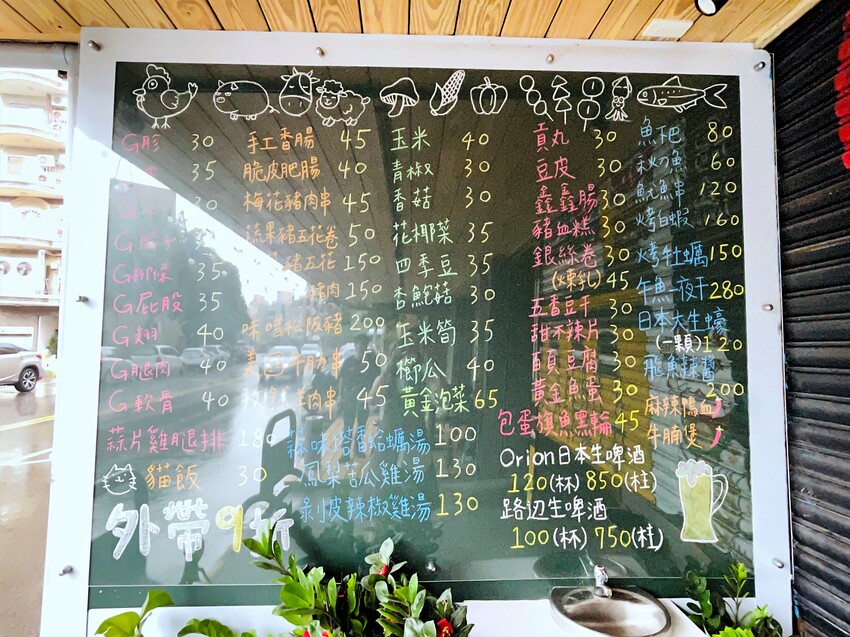 G胗 30
35
G
G 35
G屁股 35
G翅 40
G腿肉 40
G軟骨 40
蒜片雞腿排 180
貓飯 30
外帶9折
手工香腸 45
脆皮肥腸 40
梅花豬肉串 45
蔬果豬五花卷 50
豬五花 150
豬肉 150
味噌松阪豬 200
美国牛肋串 50
羊肉串 45
蒜味塔香蛤蠣湯 100
鳳梨苦瓜雞湯 130
剝皮辣椒雞湯 130
玉米 40
青椒 30
香菇 30
花椰菜 35
四季豆 35
杏鮑菇 30
玉米筍 35
櫛瓜 40
黃金泡菜 65
貢丸 30
豆皮 30
鑫鑫腸 30
豬血糕 30
銀絲卷
(煉乳) 45
五香豆干 30
甜不辣片 30
百頁豆腐 30
黃金魚蛋 30
包蛋旗魚黑輪 45
Orion日本生啤酒
120(杯) 850(柱)
路辺生啤酒
100(杯) 750(柱)
魚粑 80
秋刀魚 60
魷魚串 120
烤白蝦 160
烤牡蠣 150
午魚一夜干 280
日本大生蠔
(一顆) 120
飛魚辣醬
200
麻辣鴨血
牛腩煲